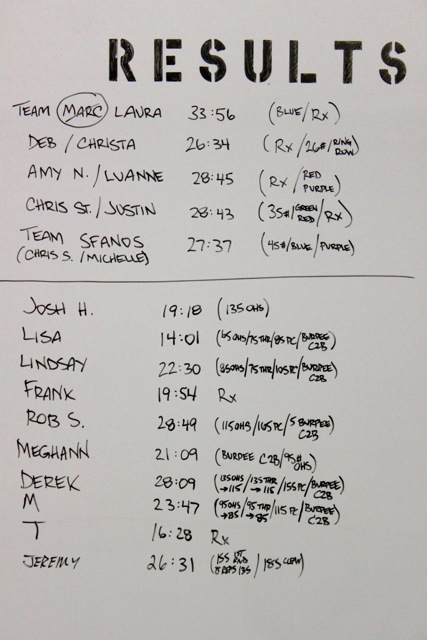 RESULTS
TEAM MARC LAURA 33:56 (BLUE/Rx)
DEB / CHRISTA 26:34 (Rx/26#/RING ROW)
AMY N. / LUANNE 28:45 (Rx / RED PURPLE)
CHRIS ST. / JUSTIN 28:43 (35#/GREEN RED/Rx)
TEAM SFANOS 27:37 (45#/BLUE/PURPLE)
(CHRIS S. / MICHELLE)
JOSH H. 19:18 (135 OHS)
LISA 14:01 (65 OHS/75 THR/85 PC/BURPEE C2B)
LINDSAY 22:30 (85 OHS/75 THR/105 PC/BURPEE C2B)
FRANK 19:54 Rx
ROB S. 28:49 (115 OHS/165 PC/5 BURPEE C2B)
MEGHANN 21:09 (BURPEE C2B/95# OHS)
DEREK 28:09 (135 OHS →115/135 THR →115/155 PC/BURPEE C2B)
M 23:47 (95 OHS →85/95 THR →85/115 PC/BURPEE C2B)
T 16:28 Rx
JEREMY 26:31 (155 1ST RND 8 REPS 135/185 CLEAN)